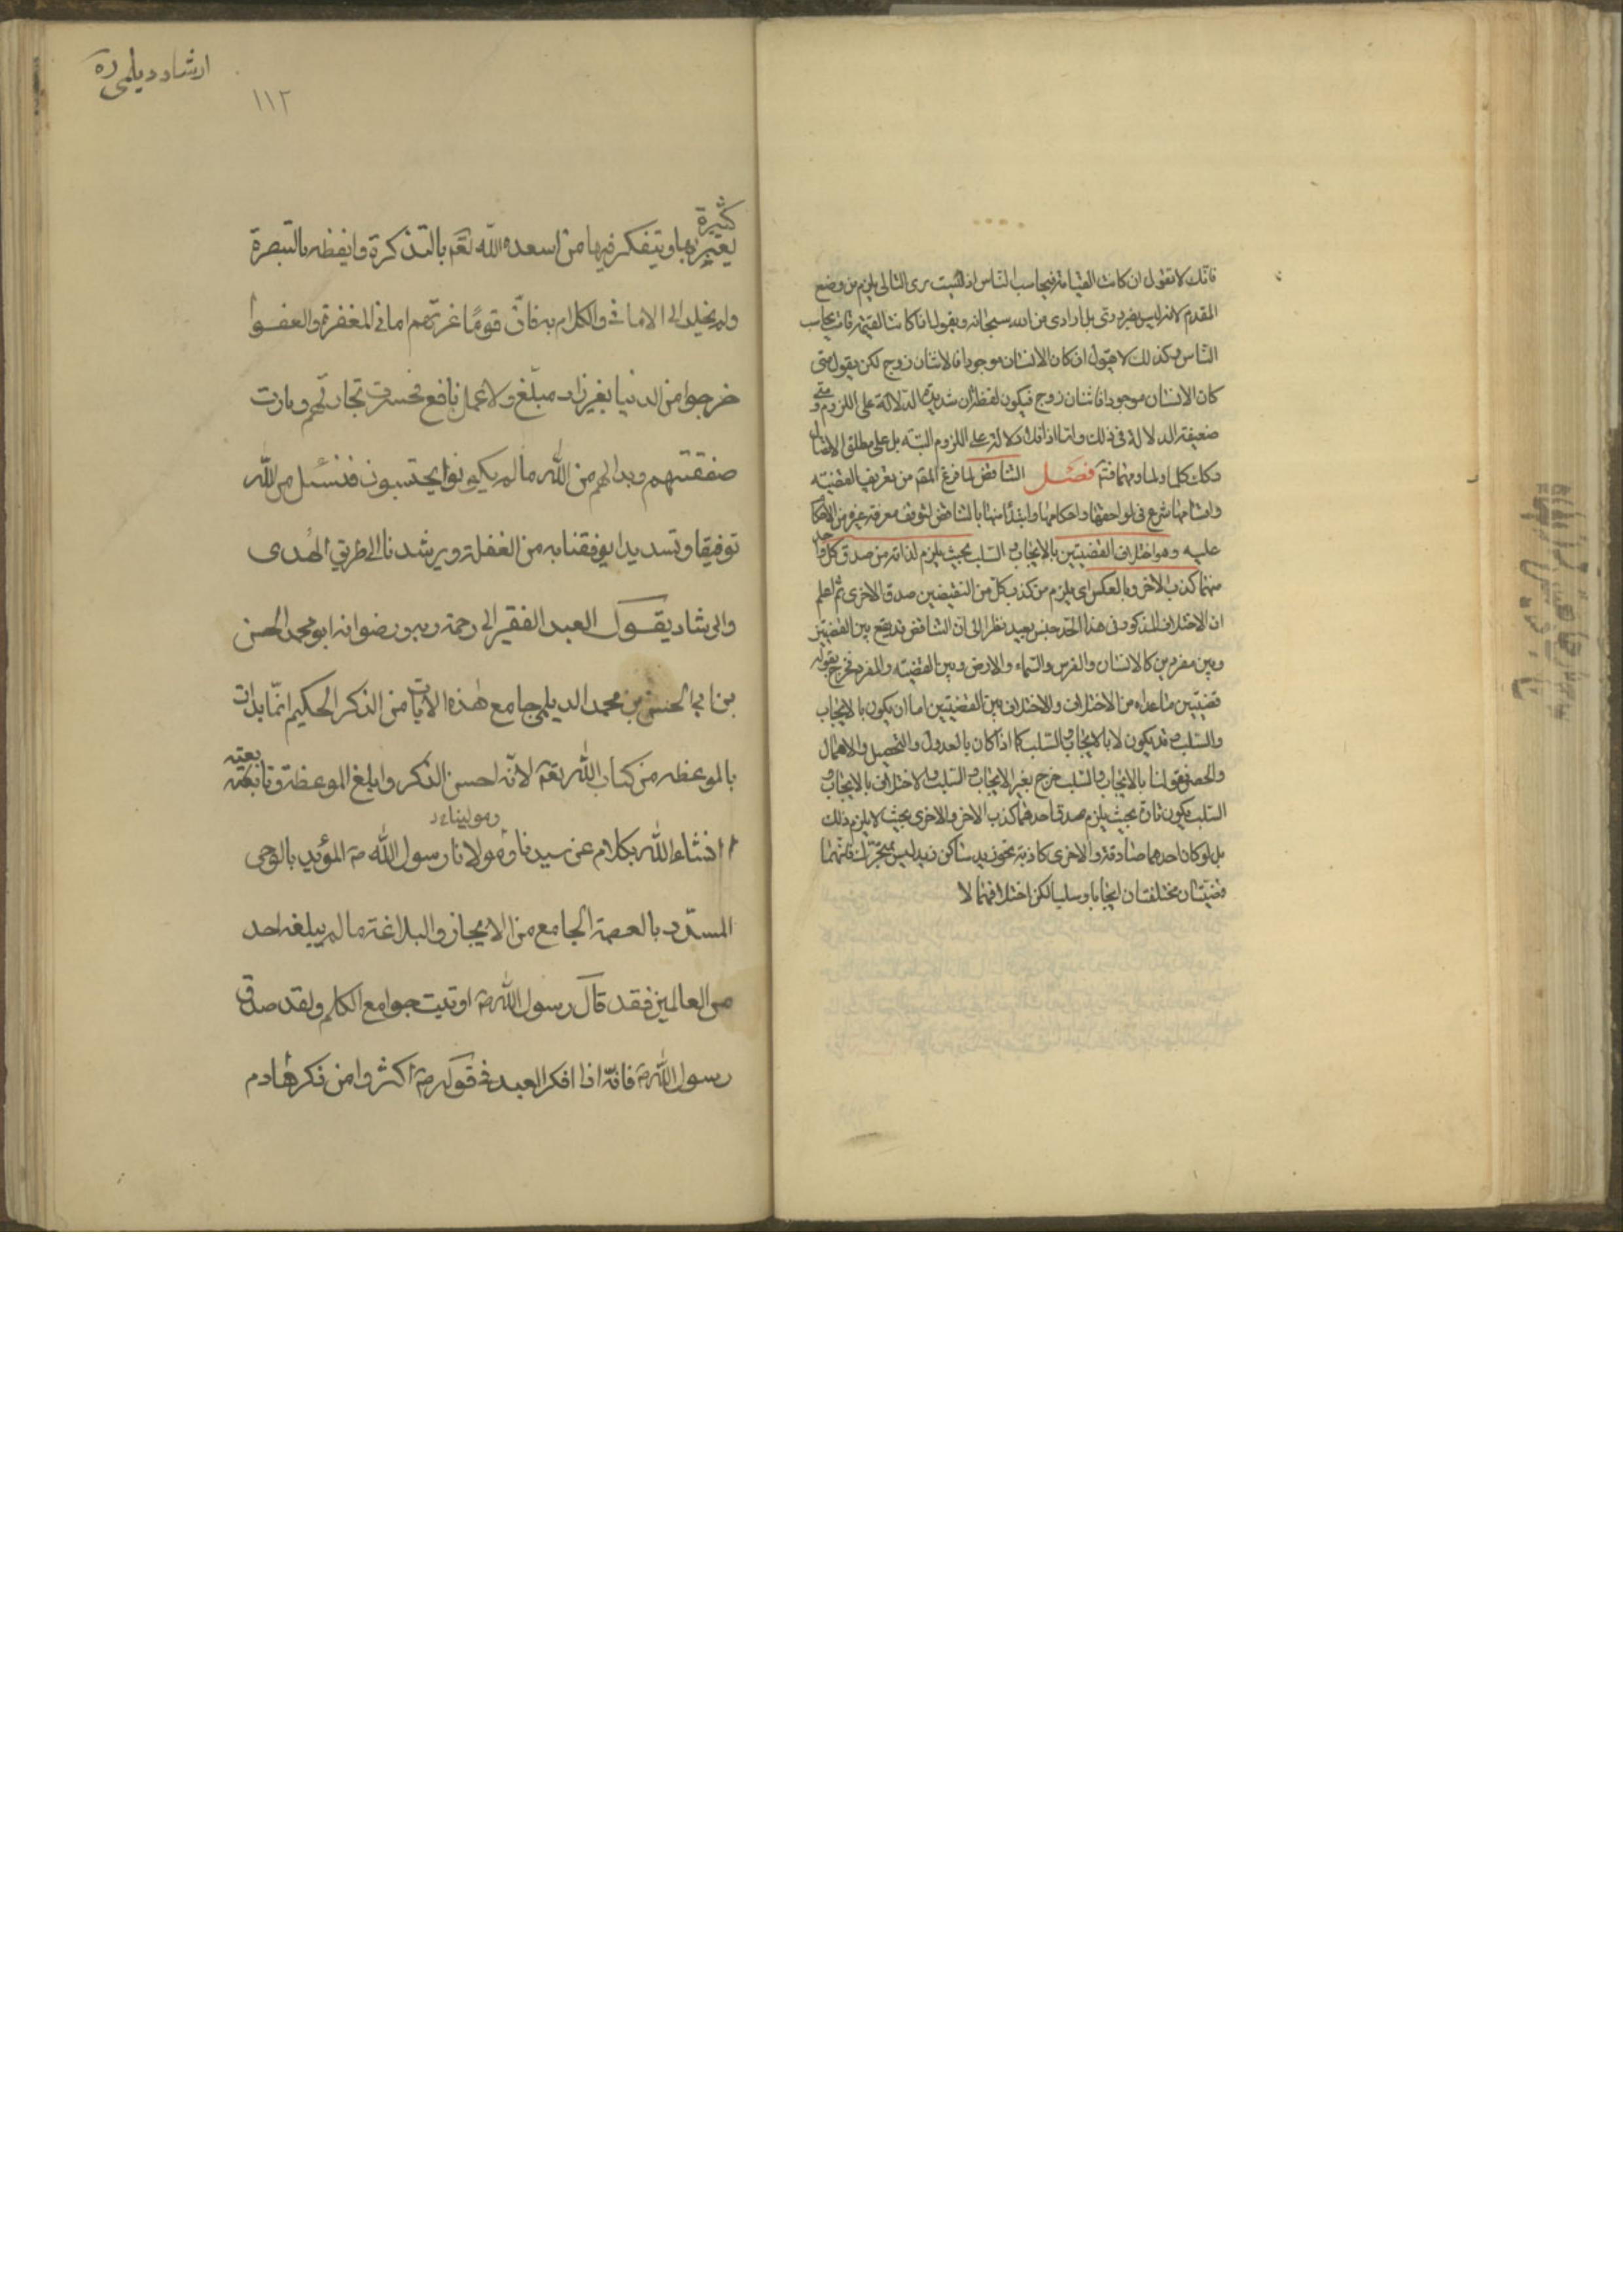 فانّك لا تقول ان كانت القيامة فيحاسب الناس اذ لست ترى التالى يلزم من وضع
المقدم لانه ليس بضرورى بل ارادى من الله سبحانه وتقول اذا كانت القيمة فانه يحاسب
الناس وكذلك لا تقول ان كان الانسان موجودا فالاثنان زوج لكن يقول متى
كان الانسان موجودا فاثنان زوج فيكون لفظ ان شديدة الدلالة على اللزوم ومتى
ضعيفة الدلالة فى ذلك واما اذا فلا دلالة على اللزوم البتة بل على مطلق الاتصال
وكك كلما ولما ومهما فتم فصل التناقض لما فرغ المقم من تعريف القضية
واقسامها شرع فى لواحقها واحكامها وابتدأ منها بالتناقض لتوقف معرفة غيره من الاحكام
عليه وهو اختلاف القضيتين بالايجاب والسلب بحيث يلزم لذاته من صدق كل واحد
منهما كذب الاخر وبالعكس اى يلزم من كذب كل من النقيضين صدق الاخرى ثم اعلم
ان الاختلاف المذكور فى هذا الحد جنس بعيد نظرا الى ان التناقض قد يقع بين القضيتين
وبين مفردين كالانسان والفرس والسماء والارض وبين القضية والمفرد فخرج بقوله
قضيتين ما عداه من الاختلاف والاختلاف بين القضيتين اما ان يكون بالايجاب
والسلب وقد يكون لا بالايجاب والسلب كما اذا كان بالعدول والتحصيل والاهمال
والحصر فقولنا بالايجاب والسلب خرج بغير الايجاب والسلب والاختلاف بالايجاب و
السلب يكون تارة بحيث يلزم صدق احدهما كذب الاخر والاخرى بحيث لا يلزم ذلك
بل لو كان احدهما صادقة والاخرى كاذبة نحو زيد ساكن زيد ليس بمتحرك فانهما
قضيتان مختلفتان ايجابا وسلبا لكن اختلافهما لا
ارشاد ديلمى ره
١١٢
كثيرة
يعتبر بها ويتفكر فيها من اسعده الله تعم بالتذكرة وايقظه بالتبصرة
ولم يخلد الى الامانى والكلام به فانّ قومًا غرّتهم امانى المغفرة والعفو
خرجوا من الدنيا بغير زاد مبلّغ ولا عمل نافع فخسرت تجارتهم وبارت
صفقتهم وبدا لهم من الله ما لم يكونوا يحتسبون فنسئل من الله
توفيقا وتسديدا يوفقنا به من الغفلة ويرشدنا الى طريق الهدى
والرشاد يقول العبد الفقير الى رحمة ربه ورضوانه ابو محمد الحسن
بن ابى الحسن بن محمد الديلمى جامع هذه الايات من الذكر الحكيم انّما بدات
بالموعظه من كتاب الله تعم لانّه احسن الذكر وابلغ الموعظة وتابعته
ان شاء الله بكلام عن سيدنا ومولانا رسول الله ص المؤيد بالوحى
المسدّد بالعصمة الجامع من الايجاز والبلاغة ما لم يبلغه احد
من العالمين فقد قال رسول الله ص اوتيت جوامع الكلم ولقد صدق
رسول الله ص فانّه اذا افكر العبد فى قوله ص اكثروا من ذكر هادم